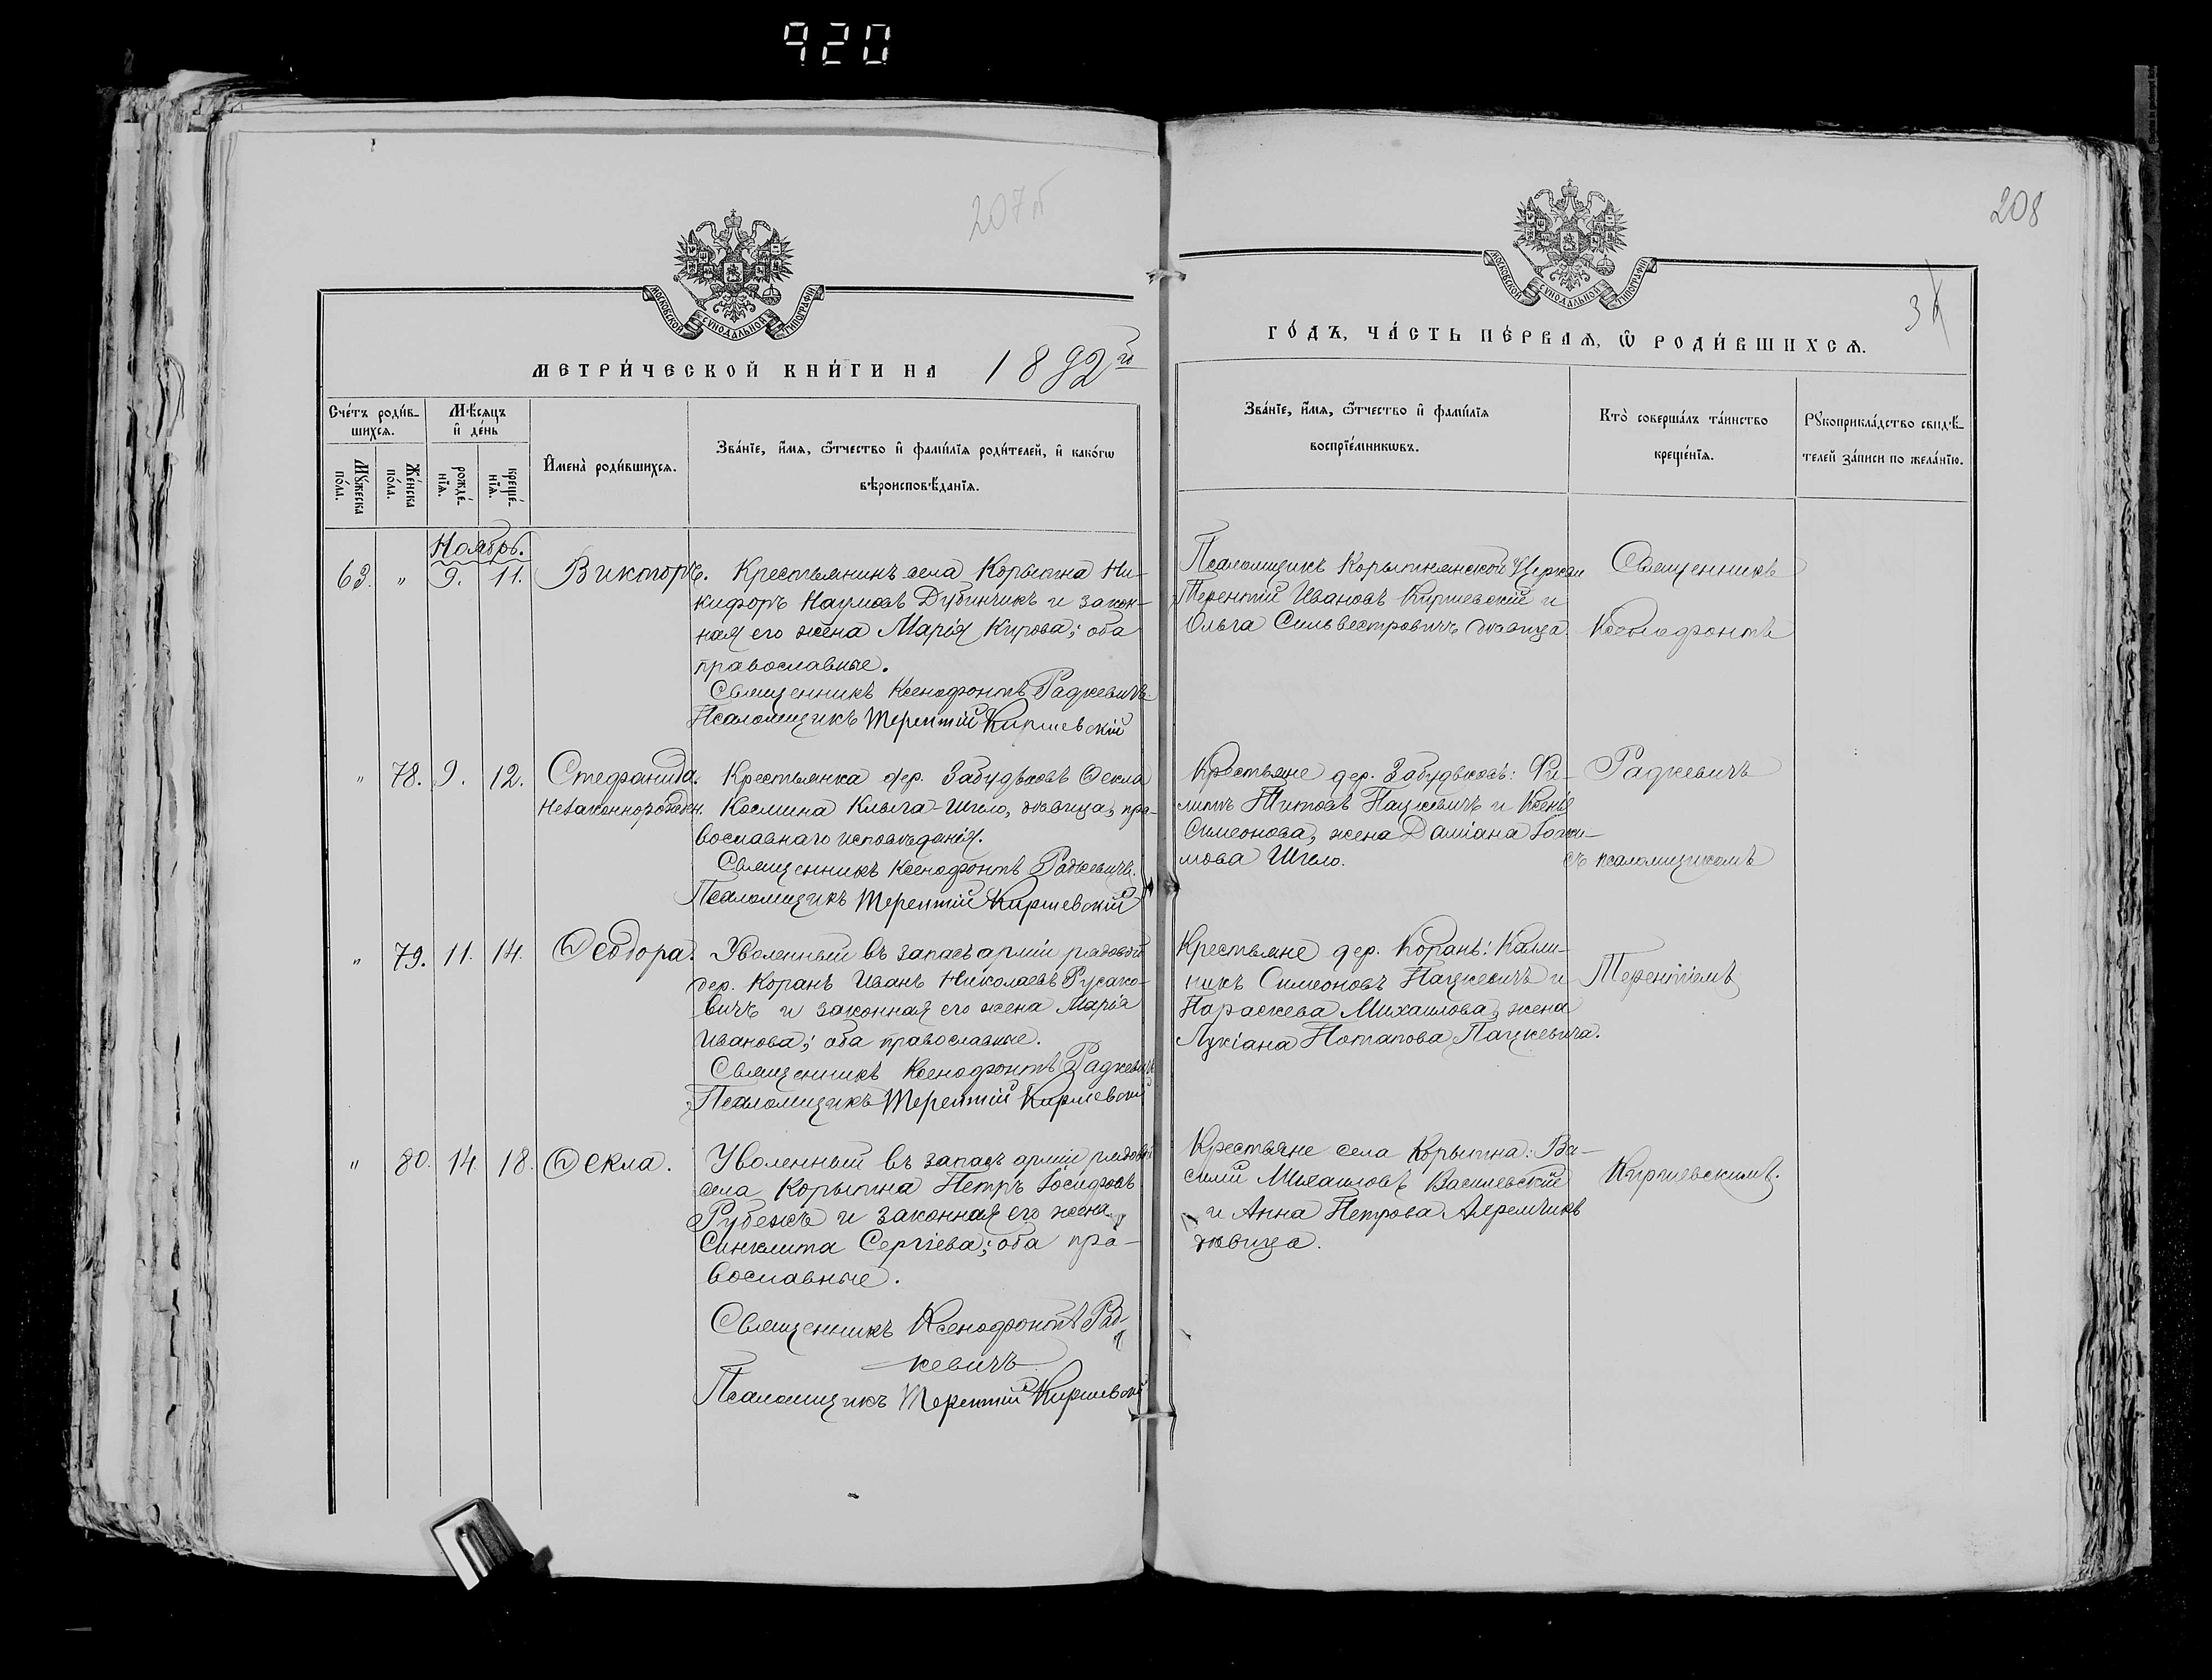 920
207 об
208
3
МОСКОВСКОЙ СѴНОДАЛЬНОЙ ТИПОГРАФІИ
МОСКОВСКОЙ СѴНОДАЛЬНОЙ ТИПОГРАФІИ
МЕТРИ́ЧЕСКОЙ КНИ́ГИ НА 1892 го
ГО́ДЪ, ЧА́СТЬ ПЕ́РВАѦ, Ѿ РОДИ́ВШИХСѦ.
Сче́тъ роди́в-
шихсѧ.
Мꙋ́жеска по́ла.
Же́нска по́ла.
Мѣ́сѧцъ
и҆ де́нь
рожде́-
нїѧ.
креще́-
нїѧ.
И҆мена̀ роди́вшихсѧ.
Зва́нїе, и҆́мѧ, ѻ҆́тчество и҆ фами́лїѧ роди́телей, и҆ како́гѡ
вѣроисповѣ́данїѧ.
Зва́нїе, и҆́мѧ, ѻ҆́тчество и҆ фами́лїѧ
воспрїе́мникѡвъ.
Кто̀ соверша́лъ та́инство
креще́нїѧ.
Рꙋкоприкла́дство свидѣ́-
телей за́писи по жела́нїю.
Ноябрь.
63. " 9. 11. Викторъ. Крестьянинъ села Корытна Ни-
кифоръ Наумовъ Дубинчикъ и закон-
ная его жена Марія Кирова; оба
православные.
Священникъ Ксенофонтъ Радкевичъ.
Псаломщикъ Терентій Киркевскій
Псаломщикъ Корытнянской Церкви
Терентій Ивановъ Киркевскій и
Ольга Сильвестровичъ дѣвица.
Священникъ
Ксенофонтъ
" 78. 9. 12. Стефанида.
Незаконнорожден.
Крестьянка дер. Забудьковъ Ѳекла
Космина Клыга-Шило, дѣвица, пра-
вославнаго исповѣданія.
Священникъ Ксенофонтъ Радкевичъ.
Псаломщикъ Терентій Киркевскій
Крестьяне дер. Забудьковъ: Фи-
липъ Титовъ Пацкевичъ и Ксенія
Симеонова, жена Даміана
Шило.
Радкевичъ
съ псаломщикомъ
" 79. 11. 14. Ѳеодора. Уволенный въ запасъ арміи рядовой
дер. Коранъ Иванъ Николаевъ Русако-
вичъ и законная его жена Марія
Иванова; оба православные.
Священникъ Ксенофонтъ Радкевичъ
Псаломщикъ Терентій Киркевскій
Крестьяне дер. Коранъ: Кали-
никъ Симеоновъ Пацкевичъ и
Параскева Михаилова, жена
Лукіана Потапова Пацкевича.
Терентіемъ
" 80. 14. 18. Ѳекла. Уволенный въ запасъ арміи рядовой
села Корытна Петръ Іосифовъ
Рубежъ и законная его жена
Синклита Сергіева; оба пра-
вославные.
Священникъ Ксенофонтъ Рад-
кевичъ
Псаломщикъ Терентій Киркевскій
Крестьяне села Корытна: Ва-
силій Михаиловъ Василевскій
и Анна Петрова
дѣвица.
Киркевскимъ.